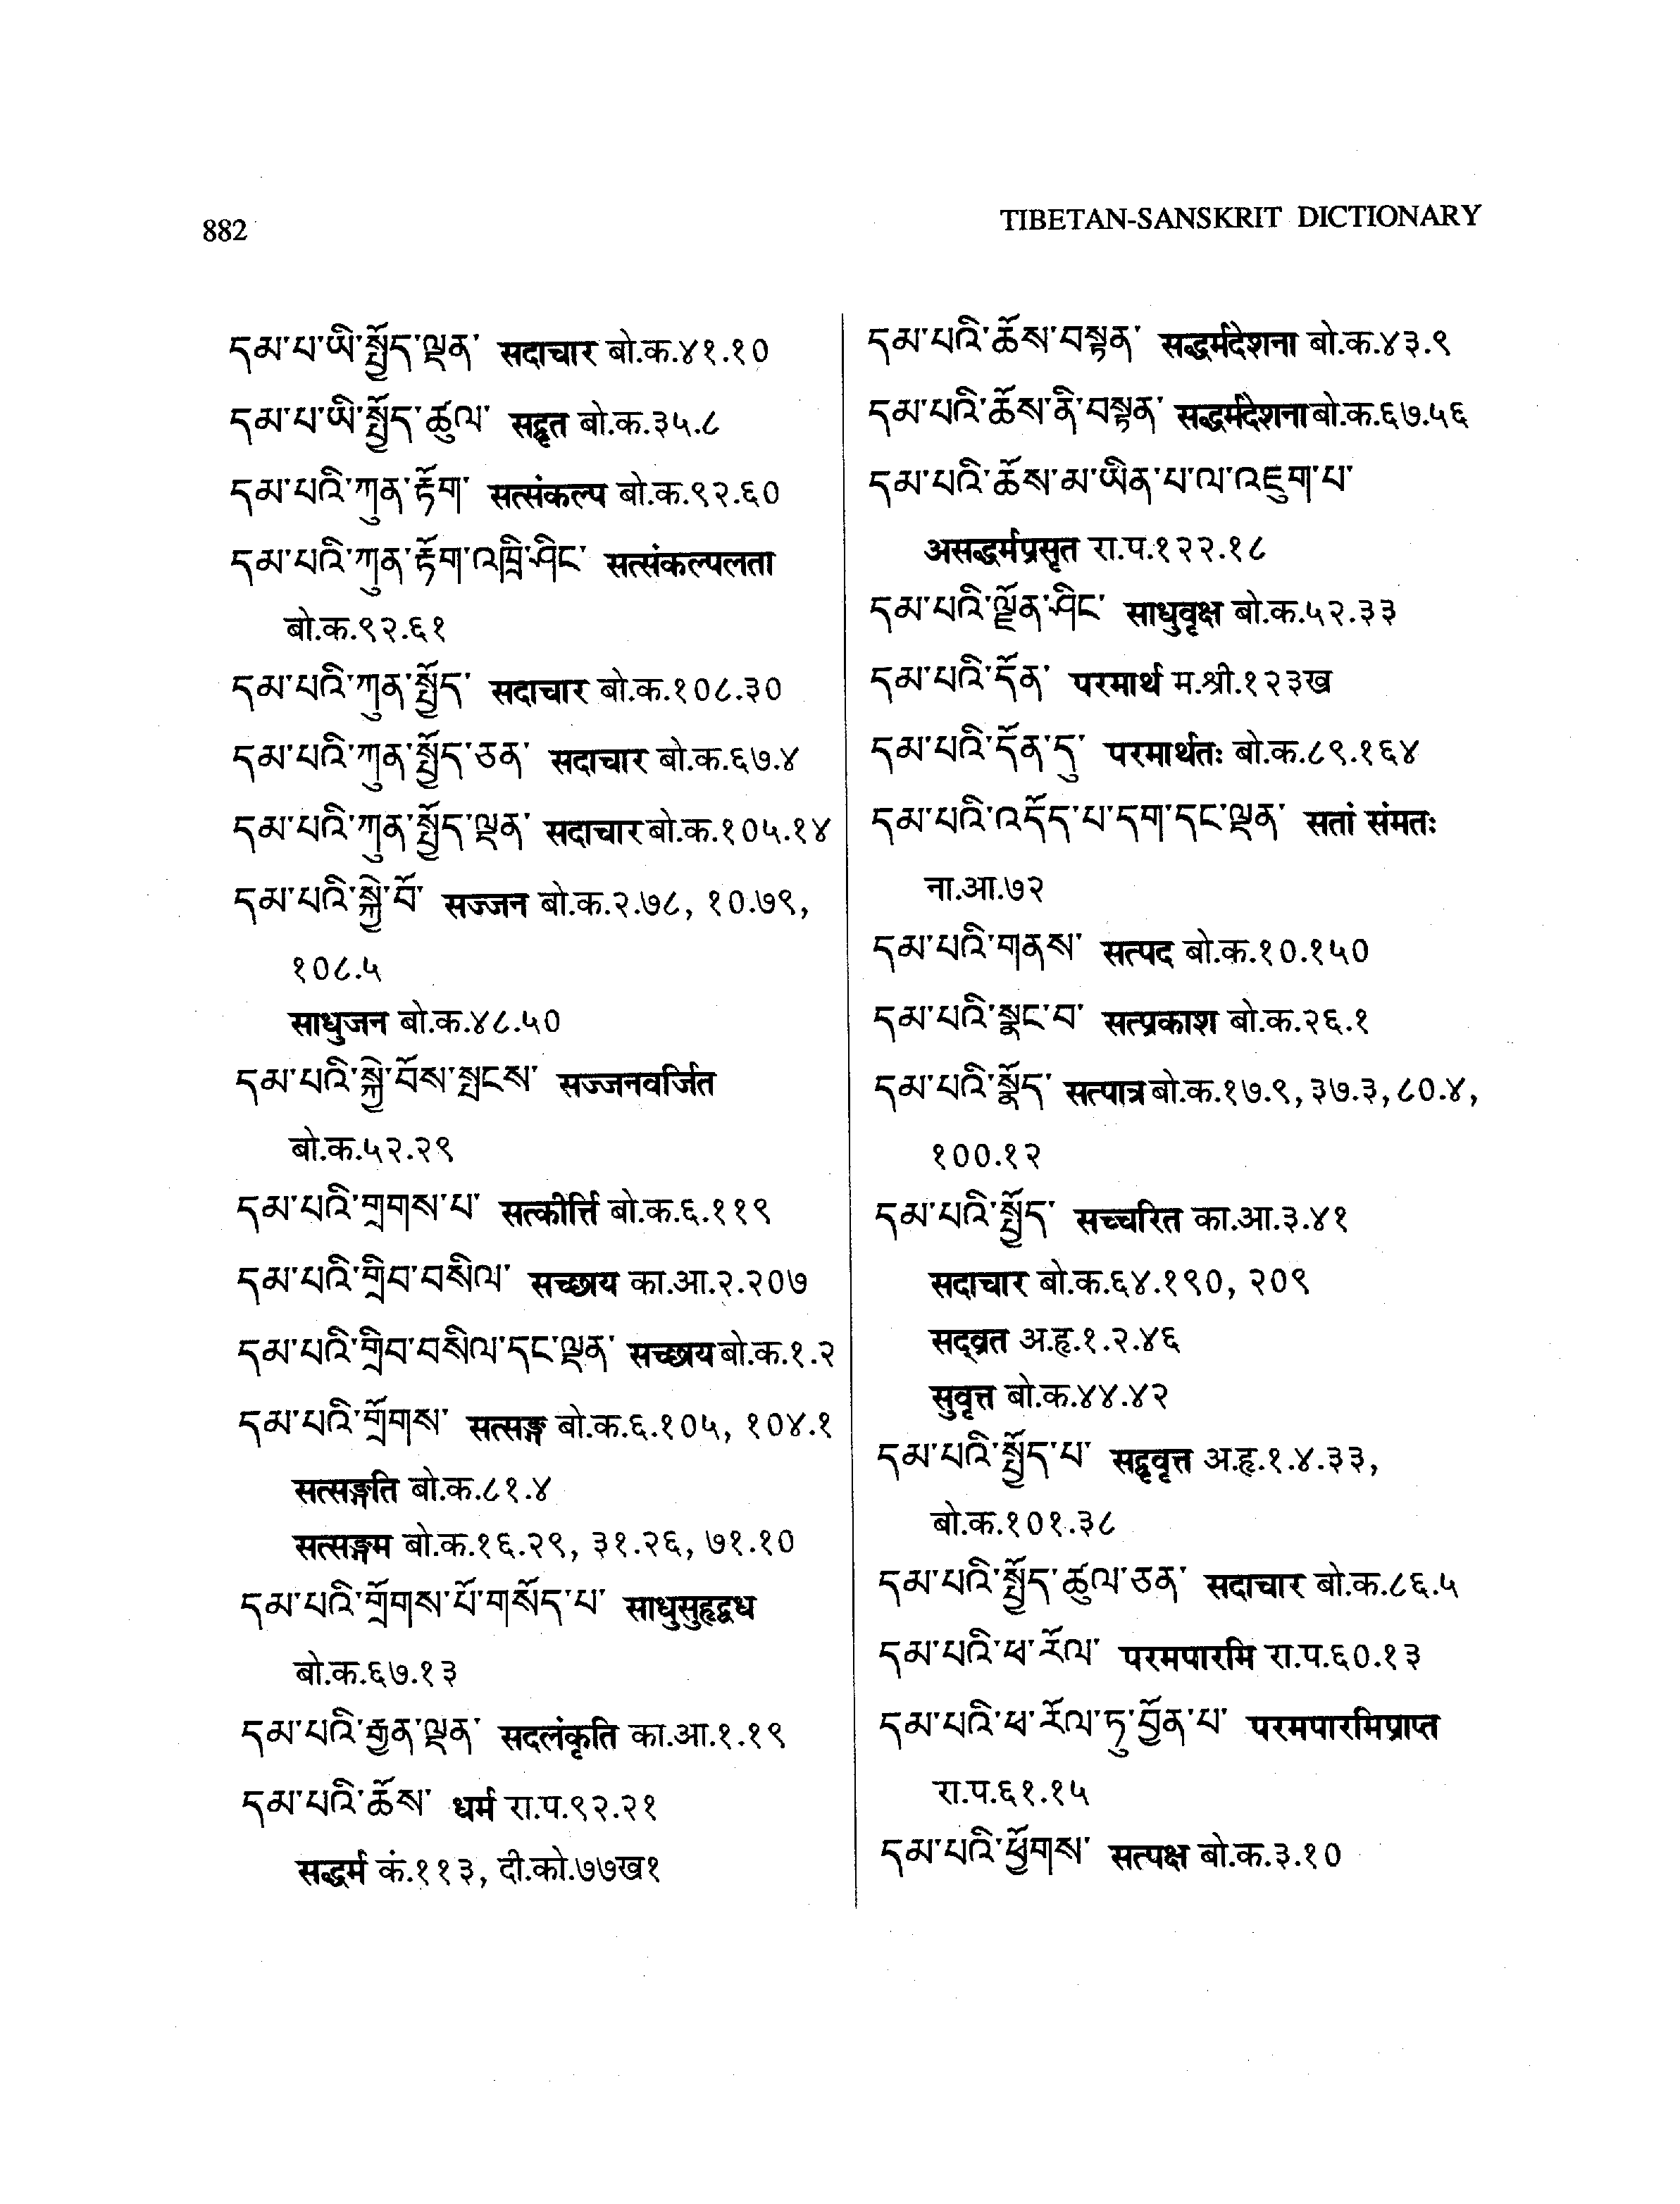 882
TIBETAN-SANSKRIT DICTIONARY
དམ་པ་ཡི་སྤྱོད་ལྡན་ सदाचार बो.क.४१.१०
དམ་པ་ཡི་སྤྱོད་ཚུལ་ सद्वृत बो.क.३५.८
དམ་པའི་ཀུན་རྟོག་ सत्संकल्प बो.क.९२.६०
དམ་པའི་ཀུན་རྟོག་འཁྲི་ཤིང་ सत्संकल्पलता
बो.क.९२.६१
དམ་པའི་ཀུན་སྤྱོད་ सदाचार बो.क.१०८.३०
དམ་པའི་ཀུན་སྤྱོད་ཅན་ सदाचार बो.क.६७.४
དམ་པའི་ཀུན་སྤྱོད་ལྡན་ सदाचार बो.क.१०५.१४
དམ་པའི་སྐྱེ་བོ་ सज्जन बो.क.२.७८, १०.७९,
१०८.५
साधुजन बो.क.४८.५०
དམ་པའི་སྐྱེ་བོས་སྤངས་ सज्जनवर्जित
बो.क.५२.२९
དམ་པའི་གྲགས་པ་ सत्कीर्त्ति बो.क.६.११९
དམ་པའི་གྲིབ་བསིལ་ सच्छाय का.आ.२.२०७
དམ་པའི་གྲིབ་བསིལ་དང་ལྡན་ सच्छाय बो.क.१.२
དམ་པའི་གྲོགས་ सत्सङ्ग बो.क.६.१०५, १०४.१
सत्सङ्गति बो.क.८१.४
सत्सङ्गम बो.क.१६.२९, ३१.२६, ७१.१०
དམ་པའི་གྲོགས་པོ་གསོད་པ་ साधुसुहृद्वध
बो.क.६७.१३
དམ་པའི་རྒྱན་ལྡན་ सदलंकृति का.आ.१.१९
དམ་པའི་ཆོས་ धर्म रा.प.९२.२१
सद्धर्म कं.११३, दी.को.७७ख१
དམ་པའི་ཆོས་བསྟན་ सद्धर्मदेशना बो.क.४३.९
དམ་པའི་ཆོས་ནི་བསྟན་ सद्धर्मदेशना बो.क.६७.५६
དམ་པའི་ཆོས་མ་ཡིན་པ་ལ་འཇུག་པ་
असद्धर्मप्रसृत रा.प.१२२.१८
དམ་པའི་ལྗོན་ཤིང་ साधुवृक्ष बो.क.५२.३३
དམ་པའི་དོན་ परमार्थ म.श्री.१२३ख
དམ་པའི་དོན་དུ་ परमार्थतः बो.क.८९.१६४
དམ་པའི་འདོད་པ་དག་དང་ལྡན་ सतां संमतः
ना.आ.७२
དམ་པའི་གནས་ सत्पद बो.क.१०.१५०
དམ་པའི་སྣང་བ་ सत्प्रकाश बो.क.२६.१
དམ་པའི་སྣོད་ सत्पात्र बो.क.१७.९, ३७.३, ८०.४,
१००.१२
དམ་པའི་སྤྱོད་ सच्चरित का.आ.३.४१
सदाचार बो.क.६४.१९०, २०९
सद्‌व्रत अ.हृ.१.२.४६
सुवृत्त बो.क.४४.४२
དམ་པའི་སྤྱོད་པ་ सद्वृवृत्त अ.हृ.१.४.३३,
बो.क.१०१.३८
དམ་པའི་སྤྱོད་ཚུལ་ཅན་ सदाचार बो.क.८६.५
དམ་པའི་ཕ་རོལ་ परमपारमि रा.प.६०.१३
དམ་པའི་ཕ་རོལ་ཏུ་བྱོན་པ་ परमपारमिप्राप्त
रा.प.६१.१५
དམ་པའི་ཕྱོགས་ सत्पक्ष बो.क.३.१०